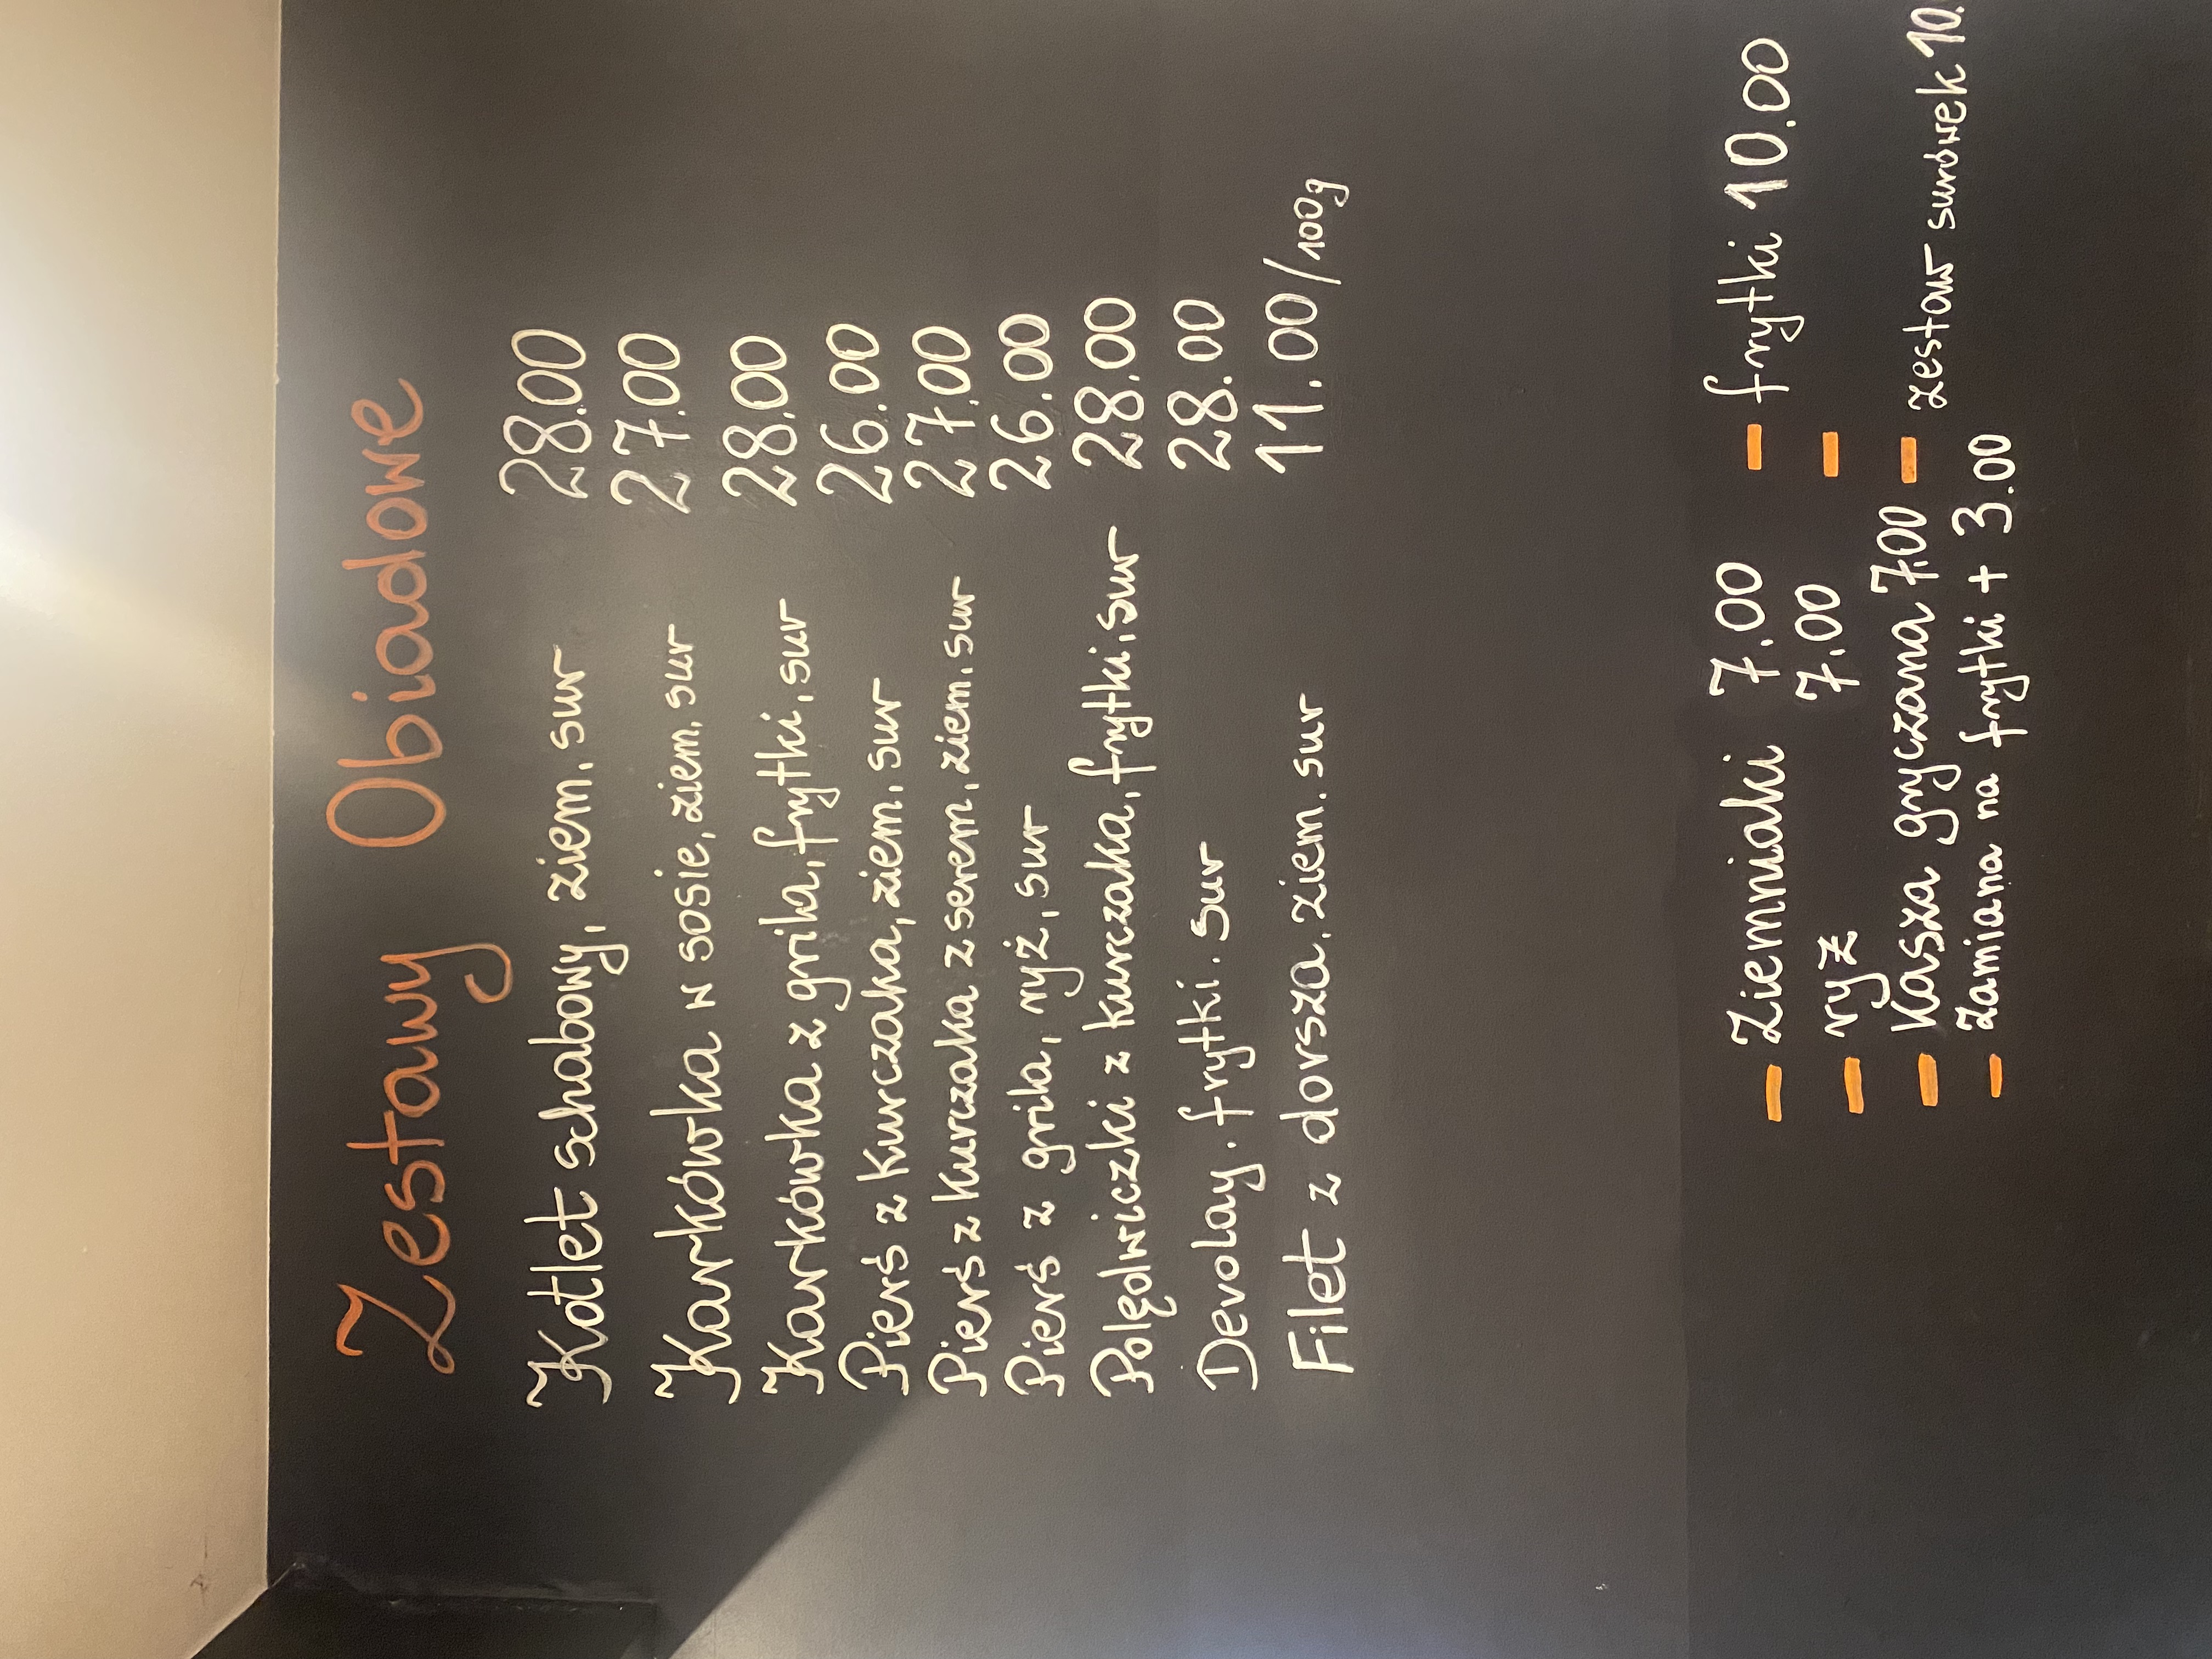 Zestawy Obiadowe
Kotlet schabowy, ziem. sur 28.00
Karkówka w sosie, ziem. sur 27.00
Karkówka z grila, frytki, sur 28.00
Pierś z Kurczaka, ziem. sur 26.00
Pierś z Kurczaka z serem, ziem. sur 27.00
Pierś z grila, ryż, sur 26.00
Polędwiczki z kurczaka, frytki, sur 28.00
Devolay. frytki. sur 28.00
Filet z dorsza. ziem. sur 11.00/100g
- Ziemniaki 7.00 - frytki 10.00
- ryż 7.00 -
- Kasza gryczana 7.00 - zestaw surówek 10.
- Zamiana na frytki + 3.00